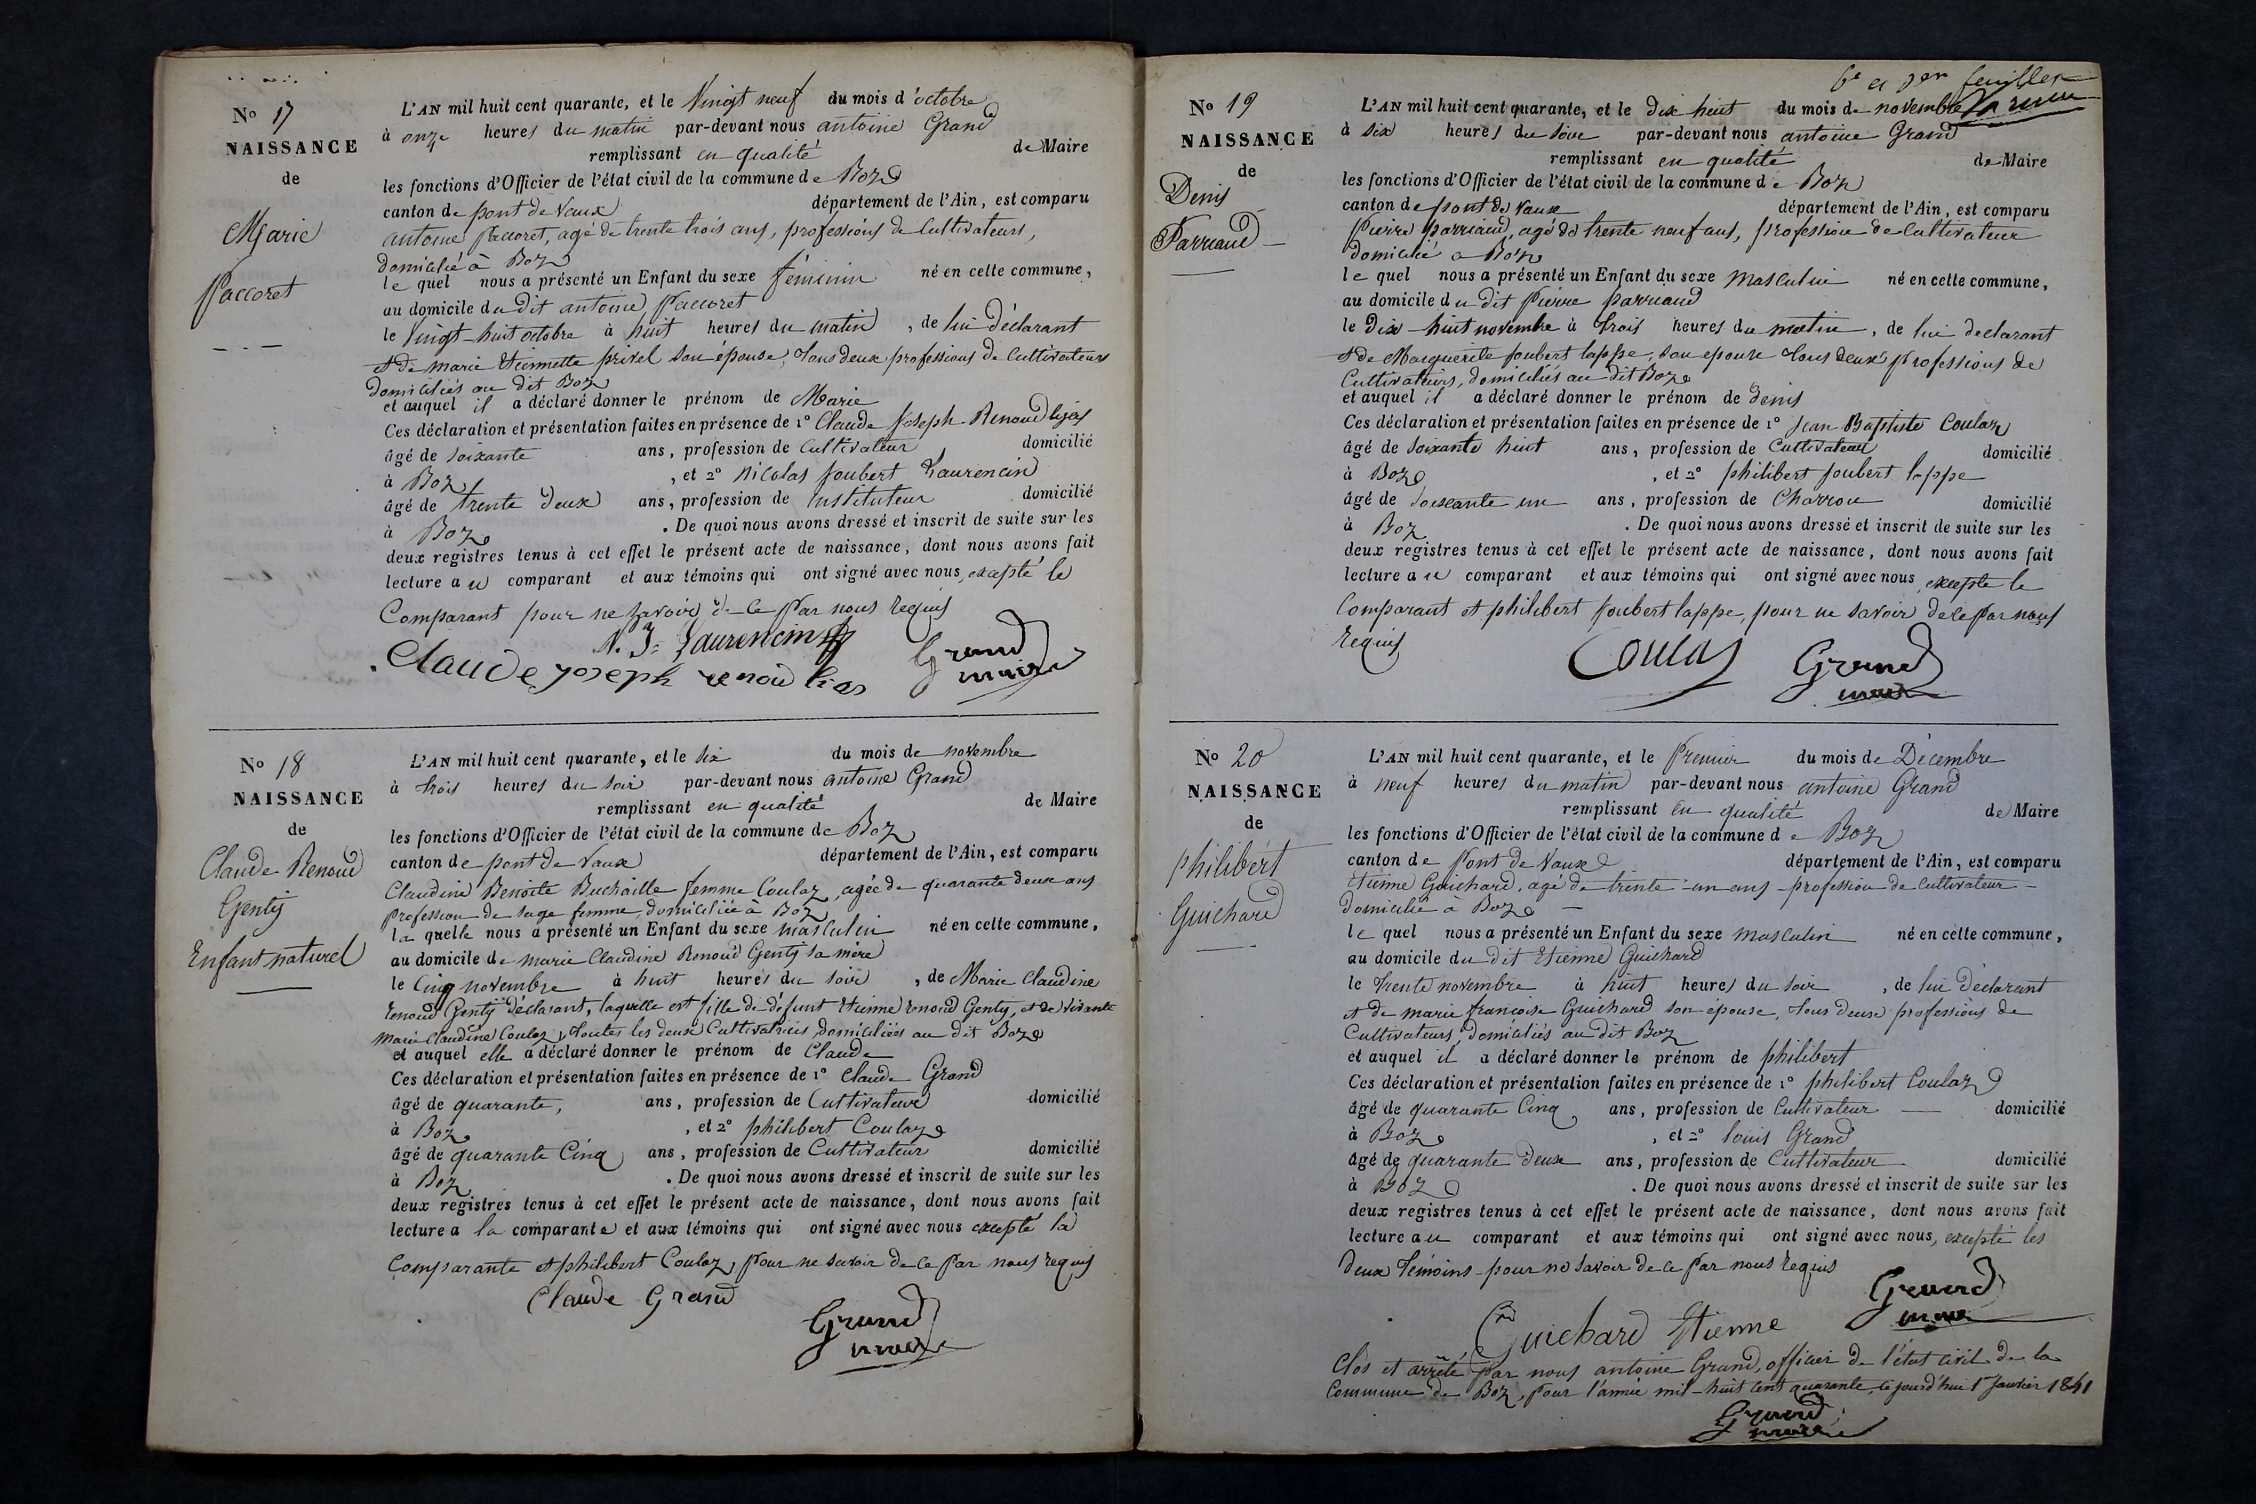 No 17
NAISSANCE
de
Marie
Paccoret
L'AN mil huit cent quarante, et le Vingt neuf du mois d'octobre
à onze heures du matin par-devant nous antoine Grand
remplissant en qualité de Maire
les fonctions d'Officier de l'état civil de la commune de Boz
canton de pont de Vaux département de l'Ain, est comparu
antoine Paccoret, agé de trente trois ans, professions de Cultivateurs,
domicilié à Boz
le quel nous a présenté un Enfant du sexe féminin né en cette commune,
au domicile du dit antoine Paccoret
le Vingt-huit octobre à huit heures du matin, de lui déclarant
et de marie Etiennette privel son épouse, tous deux professions de Cultivateurs
domiciliés au dit Boz
et auquel il a déclaré donner le prénom de Marie
Ces déclaration et présentation faites en présence de 1° Claude Joseph Renoud lyas
âgé de soixante ans, profession de Cultivateur domicilié
à Boz, et 2° Nicolas Joubert Laurencin
âgé de trente deux ans, profession de Instituteur domicilié
à Boz. De quoi nous avons dressé et inscrit de suite sur les
deux registres tenus à cet effet le présent acte de naissance, dont nous avons fait
lecture au comparant et aux témoins qui ont signé avec nous, excepté le
Comparant pour ne savoir de ce par nous requis
N. J. Laurencin
Claude joseph renoud lias Grand
maire
No 18
NAISSANCE
de
Claude Renoud
Genty
Enfant naturel
L'AN mil huit cent quarante, et le six du mois de novembre
à trois heures du soir par-devant nous antoine Grand
remplissant en qualité de Maire
les fonctions d'Officier de l'état civil de la commune de Boz
canton de pont de Vaux département de l'Ain, est comparu
Claudine Benoite Buchaille femme Coulaz, agée de quarante deux ans
profession de sage femme, domiciliée à Boz
la quelle nous a présenté un Enfant du sexe masculin né en cette commune,
au domicile de marie Claudine Renoud Genty sa mère
le Cinq novembre à huit heures du soir, de Marie Claudine
renoud Genty déclarant, laquelle est fille de défunt Etienne renoud Genty, et de vivante
Marie Claudine Coulaz, toutes les deux Cultivatrices, domiciliées au dit Boz
et auquel elle a déclaré donner le prénom de Claude
Ces déclaration et présentation faites en présence de 1° Claude Grand
âgé de quarante, ans, profession de Cultivateur domicilié
à Boz, et 2° philibert Coulaz
âgé de quarante Cinq ans, profession de Cultivateur domicilié
à Boz. De quoi nous avons dressé et inscrit de suite sur les
deux registres tenus à cet effet le présent acte de naissance, dont nous avons fait
lecture a la comparante et aux témoins qui ont signé avec nous excepté la
Comparante et philibert Coulaz, pour ne savoir de ce par nous requis
Claude Grand
Grand
maire
6e et 7er feuillet
No 19
NAISSANCE
de
Denis
Parriaud
L'AN mil huit cent quarante, et le dix huit du mois de novembre
à six heures du soir par-devant nous antoine Grand
remplissant en qualité de Maire
les fonctions d'Officier de l'état civil de la commune de Boz
canton de pont de Vaux département de l'Ain, est comparu
Pierre parriaud, agé de trente neuf ans, profession de Cultivateur
domicilié a Boz
le quel nous a présenté un Enfant du sexe masculin né en cette commune,
au domicile du dit pierre parriaud
le dix-huit novembre à trois heures du matin, de lui declarant
et de Marguerite joubert lappe, son epouse tous deux professions de
Cultivateurs, domiciliés au dit Boz
et auquel il a déclaré donner le prénom de denis
Ces déclaration et présentation faites en présence de 1° Jean Baptiste Coulaz
âgé de soixante huit ans, profession de Cultivateur domicilié
à Boz, et 2° philibert joubert lappe
âgé de soixante un ans, profession de Charron domicilié
à Boz. De quoi nous avons dressé et inscrit de suite sur les
deux registres tenus à cet effet le présent acte de naissance, dont nous avons fait
lecture au comparant et aux témoins qui ont signé avec nous, excepte le
Comparant et philibert joubert lappe, pour ne savoir de ce par nous
requis
Coulas Grand
maire
No 20
NAISSANCE
de
philibert
Guichard
L'AN mil huit cent quarante, et le Premier du mois de Décembre
à neuf heures du matin par-devant nous antoine Grand
remplissant en qualité de Maire
les fonctions d'Officier de l'état civil de la commune de Boz
canton de Pont de Vaux département de l'Ain, est comparu
Etienne Guichard, agé de trente-un ans profession de Cultivateur
domicilié à Boz
le quel nous a présenté un Enfant du sexe masculin né en cette commune,
au domicile du dit Etienne Guichard
le trente novembre à huit heures du soir, de lui déclarant
et de marie françoise Guichard son épouse, tous deux professions de
Cultivateurs, domiciliés au dit Boz
et auquel il a déclaré donner le prénom de philibert
Ces déclaration et présentation faites en présence de 1° philibert Coulaz
âgé de quarante Cinq ans, profession de Cultivateur domicilié
à Boz, et 2° louis Grand
âgé de quarante deux ans, profession de Cultivateur domicilié
à Boz. De quoi nous avons dressé et inscrit de suite sur les
deux registres tenus à cet effet le présent acte de naissance, dont nous avons fait
lecture au comparant et aux témoins qui ont signé avec nous, excepté les
deux témoins pour ne savoir de ce par nous requis
Grand
maire
Guichard Etienne
Clos et arrêté par nous antoine Grand, officier de l'état civil de la
Commune de Boz, pour l'année mil-huit cent quarante, ce jourd'hui 1er Janvier 1841
Grand
maire